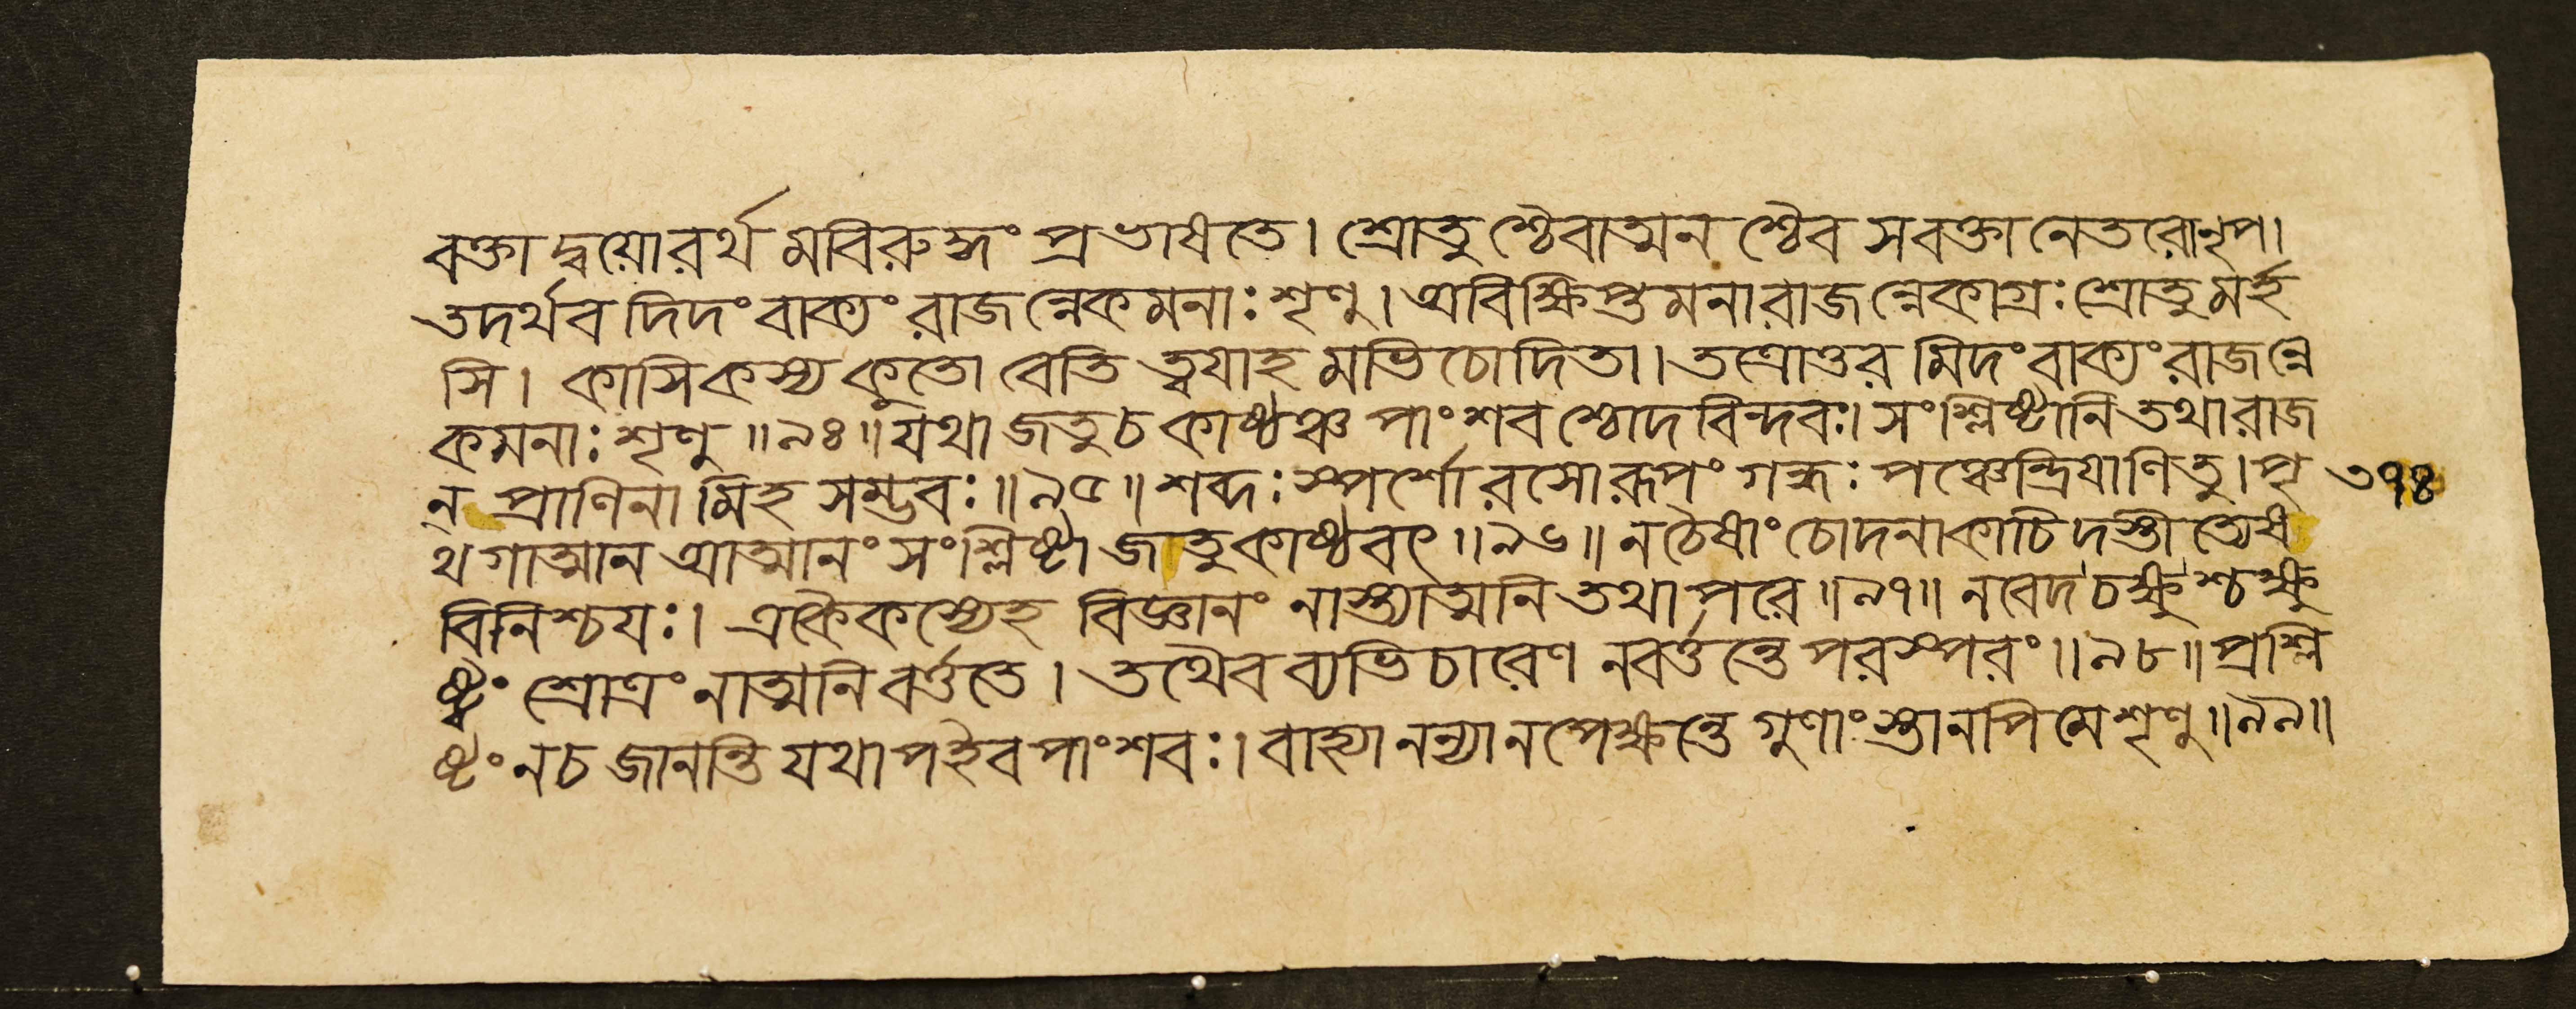 বক্তা দ্বয়োরর্থ মবিরুদ্ধং প্রভাষতে। শ্রোতুশ্চৈবাত্মনশ্চৈব সবক্তা নেতরোনৃপ।
তদর্থব দিদং বাক্যং রাজন্নেকমনাঃ শৃণু। অবিক্ষিপ্তমনারাজন্নেকাগ্রঃ শ্রোতুমর্হ
সি। কাসিকস্য কুতো বেতি ত্বযাহ মভিচোদিতা। তত্রোত্তর মিদং বাক্যং রাজন্নে
কমনাঃ শৃণু॥৯৪॥ যথা জতুচ কাষ্ঠঞ্চ পাংশবশ্চোদ বিন্দবঃ। সংশ্লিষ্টানি তথারাজ
ন্ প্রাণিনা মিহ সম্ভবঃ॥৯৫॥ শব্দঃ স্পর্শো রসোরূপং গন্ধঃ পঞ্চেন্দ্রিযাণিতু। পৃ ৩৭৪
থগাত্মান আত্মানং সংশ্লিষ্টা জাতুকাষ্ঠবৎ॥৯৬॥ নচৈষাং চোদনাকাচিদস্তীত্যেষ
বিনিশ্চযঃ। একৈকস্যেহ বিজ্ঞানং নাস্ত্যাত্মনি তথা পরে॥৯৭॥ নবেদ চক্ষুশ্চক্ষু
ষ্ট্বং শ্রোত্রং নাত্মনি বর্ত্ততে। তথৈব ব্যভিচারেণ নবর্ত্তন্তে পরস্পরং॥৯৮॥ প্রশ্লি
ষ্টং নচ জানন্তি যথাপইব পাংশবঃ। বাহ্যানন্যানপেক্ষন্তে গুণাং স্তানপি মে শৃণু॥৯৯॥